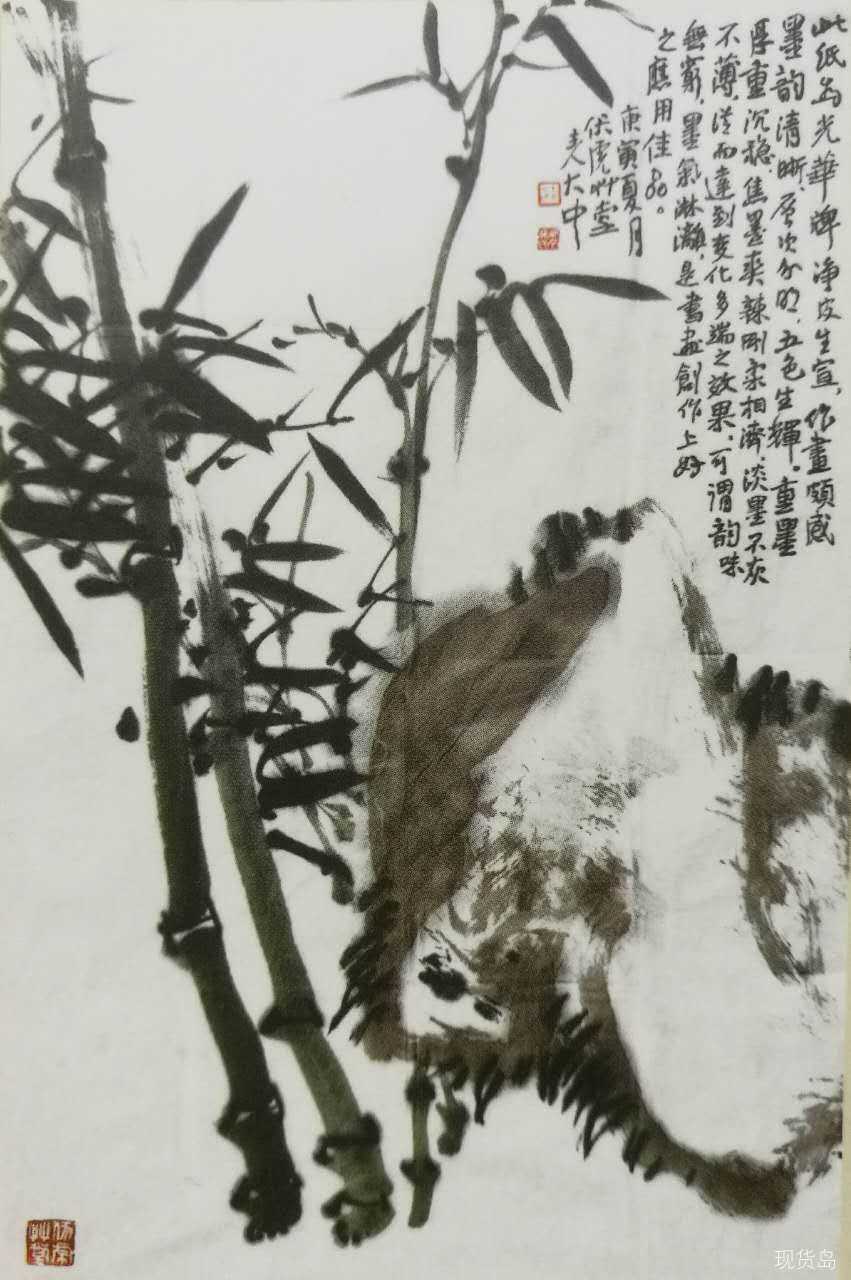 此纸为光華牌净皮生宣，作畫頗感
墨韵清晰，层次分明，五色生輝。重墨
厚重沉穏，焦墨爽辣刚柔相濟，淡墨不灰
不薄，从而達到变化多端之效果，可谓韵味
無窮，墨氣淋灕，是書畫創作上好
之應用佳品。
庚寅夏月
伏虎草堂
主人大中
现货岛